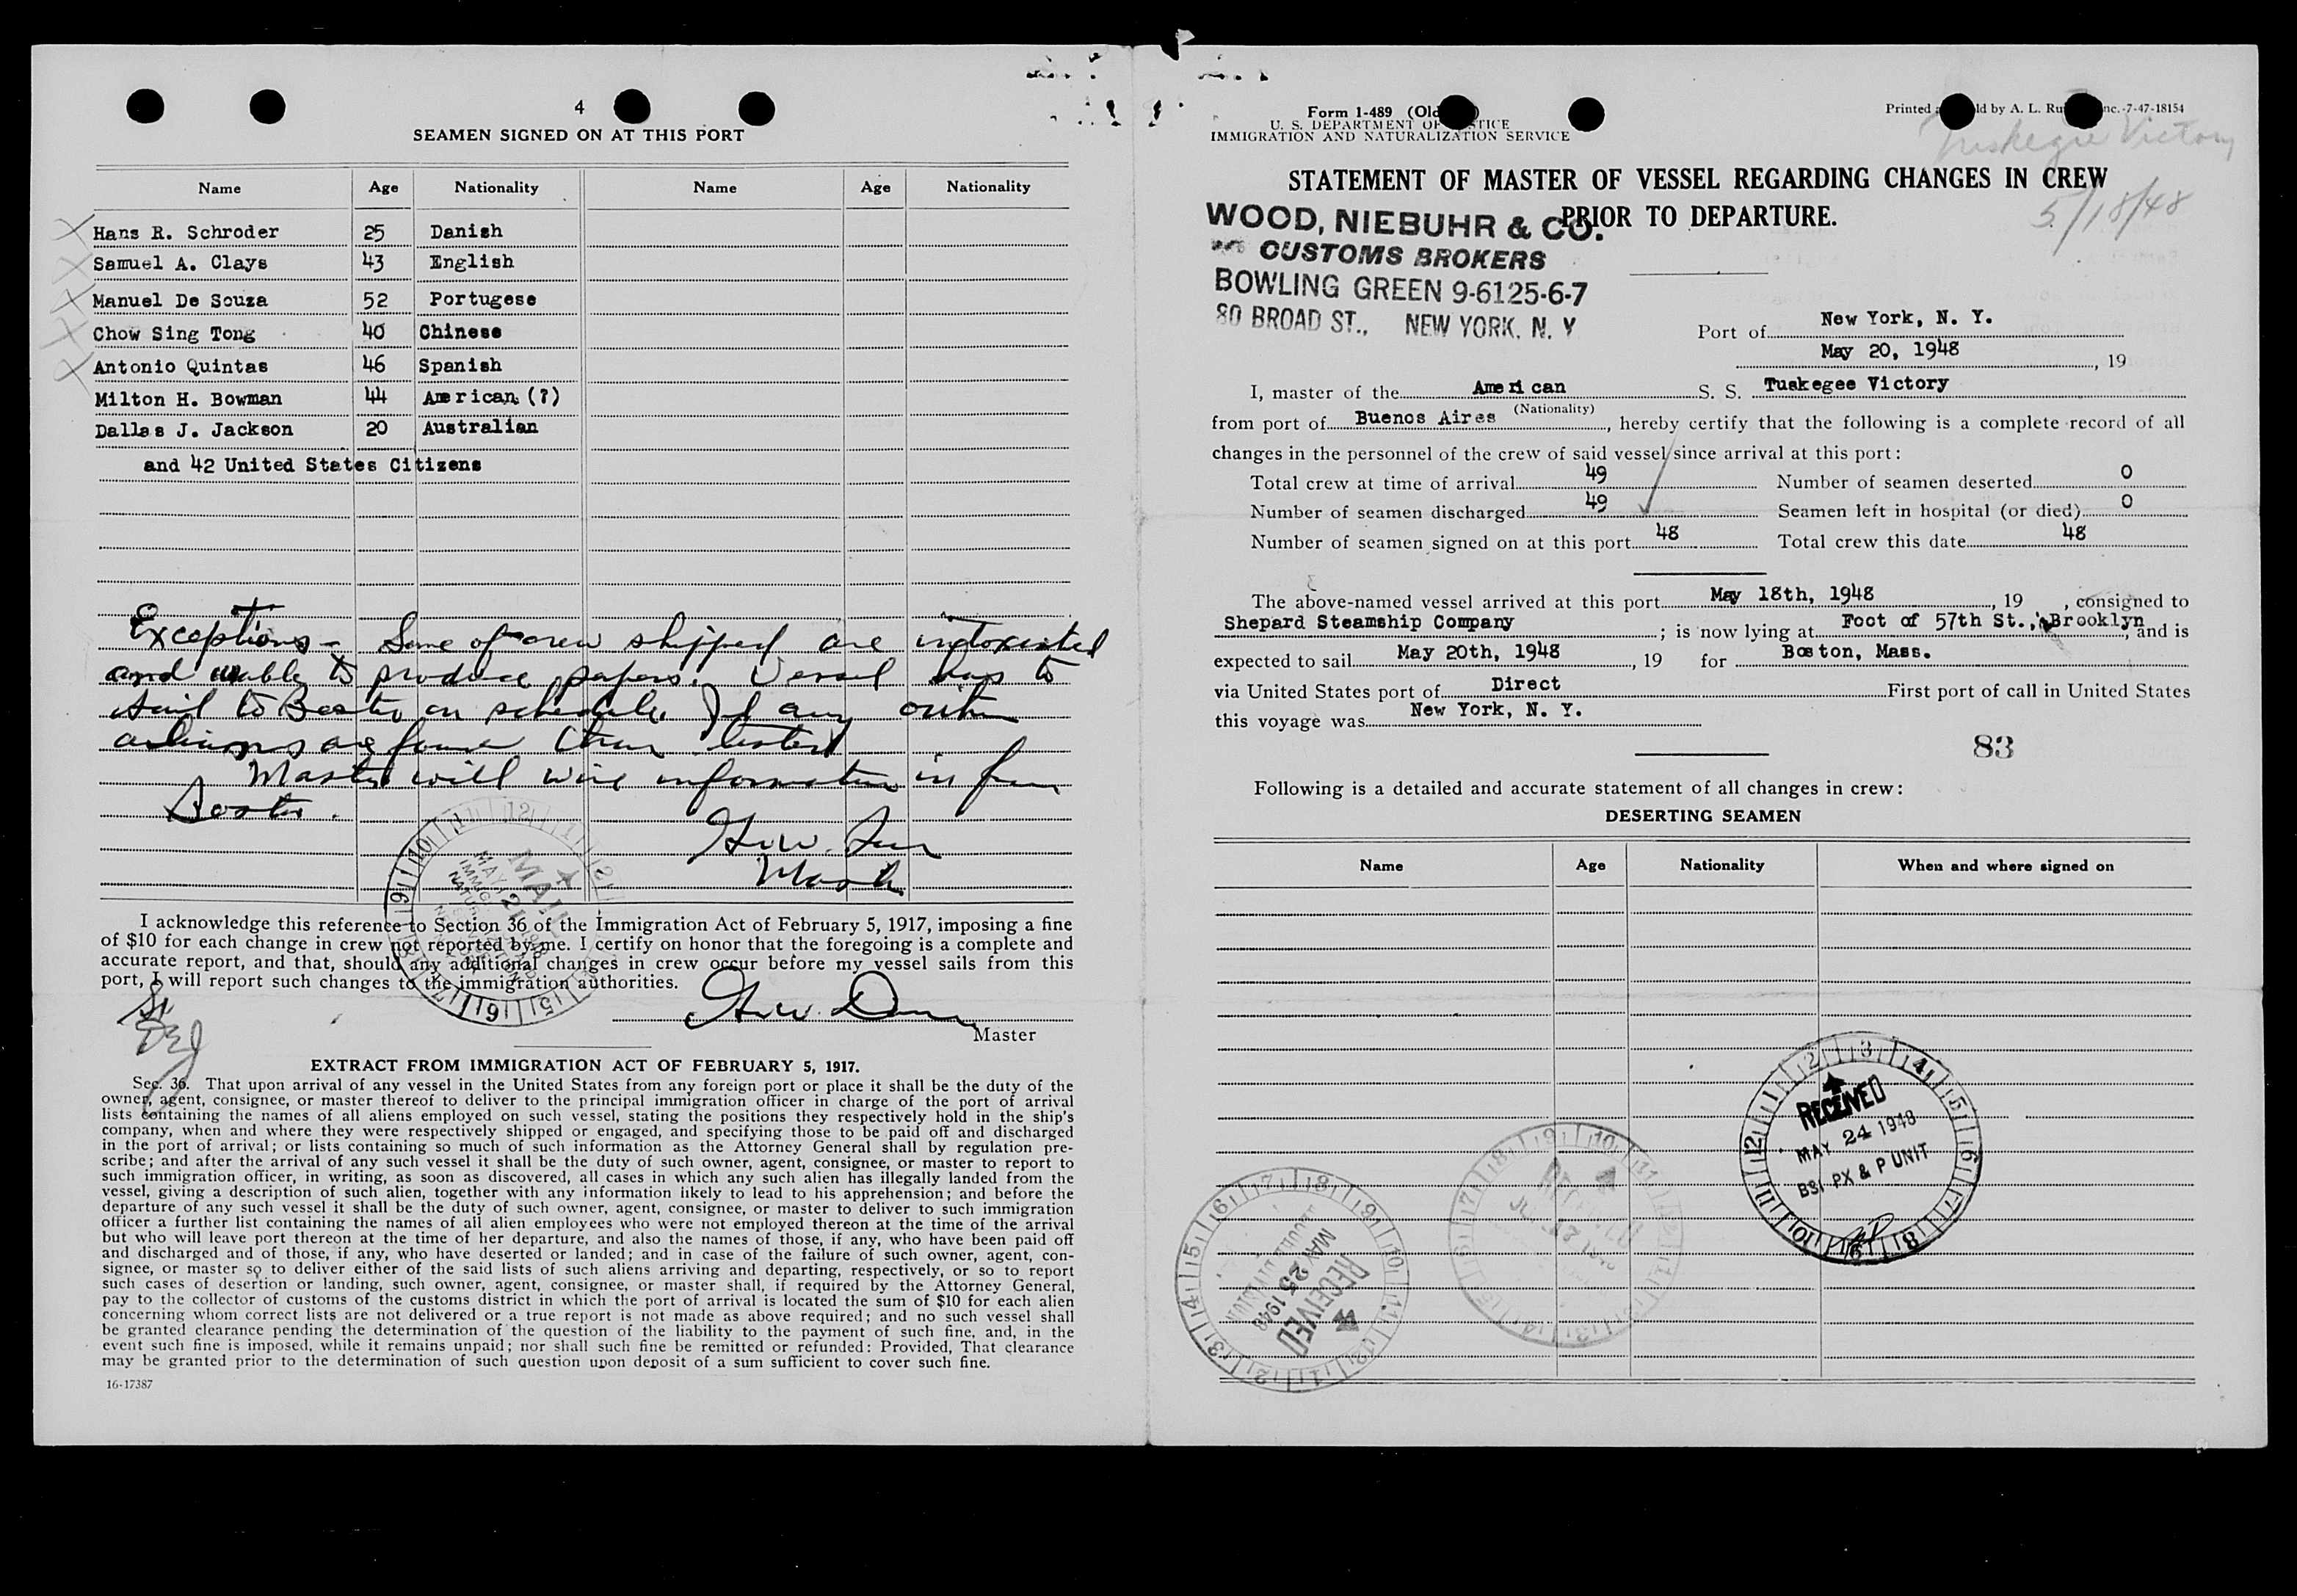 4
SEAMEN SIGNED ON AT THIS PORT
Name Age Nationality Name Age Nationality
Hans R. Schroder 25 Danish
Samuel A. Clays 43 English
Manuel De Souza 52 Portugese
Chow Sing Tong 40 Chinese
Antonio Quintas 46 Spanish
Milton H. Bowman 44 American (?)
Dallas J. Jackson 20 Australian
and 42 United States Citizens
Exceptions - Some of crew shipped are intoxicated
and unable to produce papers. Vessel has to
sail to Boston on schedule. If any
are found than listed
Master will wire information in from
Boston.
H. W.
Master
I acknowledge this reference to Section 36 of the Immigration Act of February 5, 1917, imposing a fine
of $10 for each change in crew not reported by me. I certify on honor that the foregoing is a complete and
accurate report, and that, should any additional changes in crew occur before my vessel sails from this
port, I will report such changes to the immigration authorities.
H. W.
Master
EXTRACT FROM IMMIGRATION ACT OF FEBRUARY 5, 1917.
Sec. 36. That upon arrival of any vessel in the United States from any foreign port or place it shall be the duty of the
owner, agent, consignee, or master thereof to deliver to the principal immigration officer in charge of the port of arrival
lists containing the names of all aliens employed on such vessel, stating the positions they respectively hold in the ship's
company, when and where they were respectively shipped or engaged, and specifying those to be paid off and discharged
in the port of arrival; or lists containing so much of such information as the Attorney General shall by regulation pre-
scribe; and after the arrival of any such vessel it shall be the duty of such owner, agent, consignee, or master to report to
such immigration officer, in writing, as soon as discovered, all cases in which any such alien has illegally landed from the
vessel, giving a description of such alien, together with any information likely to lead to his apprehension; and before the
departure of any such vessel it shall be the duty of such owner, agent, consignee, or master to deliver to such immigration
officer a further list containing the names of all alien employees who were not employed thereon at the time of the arrival
but who will leave port thereon at the time of her departure, and also the names of those, if any, who have been paid off
and discharged and of those, if any, who have deserted or landed; and in case of the failure of such owner, agent, con-
signee, or master so to deliver either of the said lists of such aliens arriving and departing, respectively, or so to report
such cases of desertion or landing, such owner, agent, consignee, or master shall, if required by the Attorney General,
pay to the collector of customs of the customs district in which the port of arrival is located the sum of $10 for each alien
concerning whom correct lists are not delivered or a true report is not made as above required; and no such vessel shall
be granted clearance pending the determination of the question of the liability to the payment of such fine, and, in the
event such fine is imposed, while it remains unpaid; nor shall such fine be remitted or refunded: Provided, That clearance
may be granted prior to the determination of such question upon deposit of a sum sufficient to cover such fine.
16-17387
Form 1-489 (Old
U. S. DEPARTMENT OF JUSTICE
IMMIGRATION AND NATURALIZATION SERVICE
Printed ld by A. L. Ru nc.-7-47-18154
Tuskegee Victory
5/18/48
STATEMENT OF MASTER OF VESSEL REGARDING CHANGES IN CREW
PRIOR TO DEPARTURE.
WOOD, NIEBUHR & CO.
CUSTOMS BROKERS
BOWLING GREEN 9-6125-6-7
80 BROAD ST., NEW YORK, N. Y
Port of New York, N. Y.
May 20, 1948, 19
I, master of the American S. S. Tuskegee Victory
(Nationality)
from port of Buenos Aires, hereby certify that the following is a complete record of all
changes in the personnel of the crew of said vessel since arrival at this port:
Total crew at time of arrival 49 Number of seamen deserted 0
Number of seamen discharged 49 Seamen left in hospital (or died) 0
Number of seamen signed on at this port 48 Total crew this date 48
The above-named vessel arrived at this port May 18th, 1948, 19 , consigned to
Shepard Steamship Company; is now lying at Foot of 57th St., Brooklyn, and is
expected to sail May 20th, 1948, 19 for Boston, Mass.
via United States port of Direct First port of call in United States
this voyage was New York, N. Y.
83
Following is a detailed and accurate statement of all changes in crew:
DESERTING SEAMEN
Name Age Nationality When and where signed on
RECEIVED
MAY 24 1948
BSI PX & P UNIT
RECEIVED
MAY 25 1948